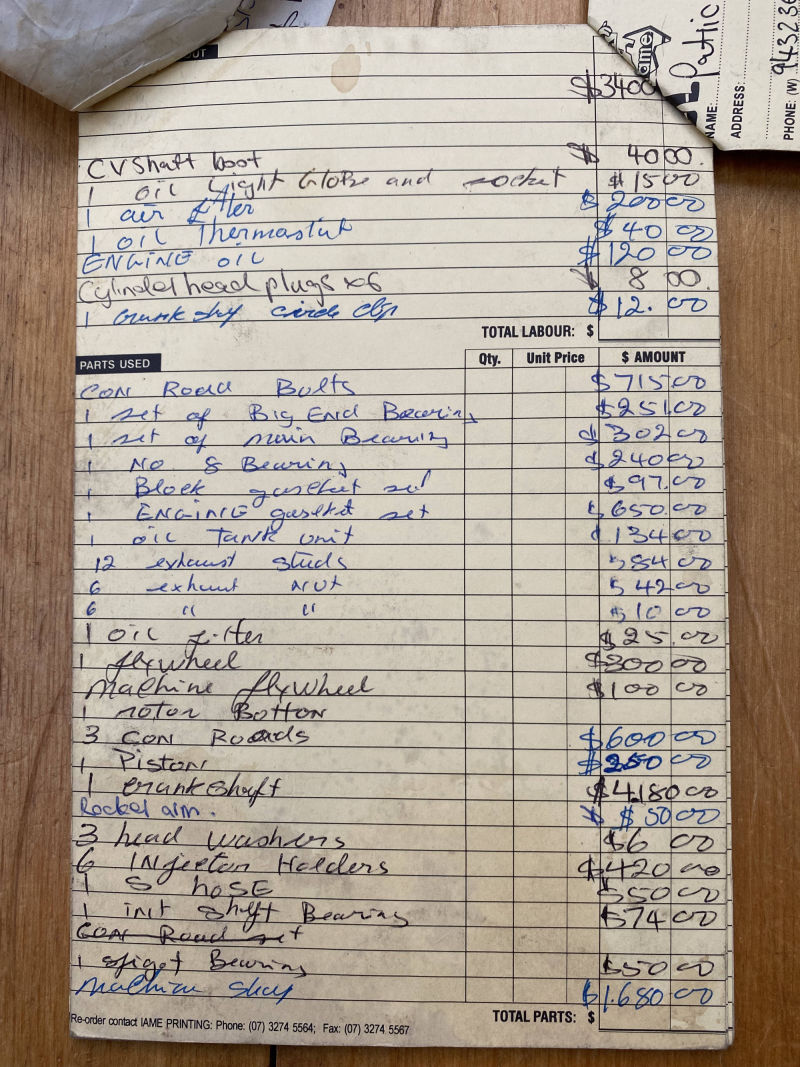 OUT
$3400
CV Shaft boot $ 40 00.
1 oil Light Globe and socket $ 15 00
1 air filter $ 200 00
1 oil Thermostat $ 40 00
ENGINE oil $ 120 00
Cylinder head plugs x6 $ 8 00.
1 crank circle clip $ 12. 00
TOTAL LABOUR: $
PARTS USED Qty. Unit Price $ AMOUNT
CON Road Bolts $ 715 00
1 set of Big End Bearing $ 251.00
1 set of main Bearing $ 302 00
1 No. 8 Bearing $ 240 00
1 Block gasket set $ 97.00
1 ENGINE gasket set $ 650 00
1 oil Tank unit $ 134 00
12 exhaust studs $ 84 00
6 exhaust NUT $ 42 00
6 " " $ 10 00
1 oil filter $ 25.00
1 flywheel $300 00
Machine flywheel $100 00
1 rotor Botton
3 CON Roads $600 00
1 Piston $250 00
1 crankshaft $4,180 00
Rocker arm. $ $ 50 00
3 head washers $6 00
6 INjector Holders $420 00
1 S hose $50 00
1 shaft Bearing $74 00
CON Road set
1 spigot Bearing $50 00
Machine shop $1.680 00
Re-order contact IAME PRINTING: Phone: (07) 3274 5564; Fax: (07) 3274 5567 TOTAL PARTS: $
iame
NAME: Patric
ADDRESS:
PHONE: (W) 9432 36